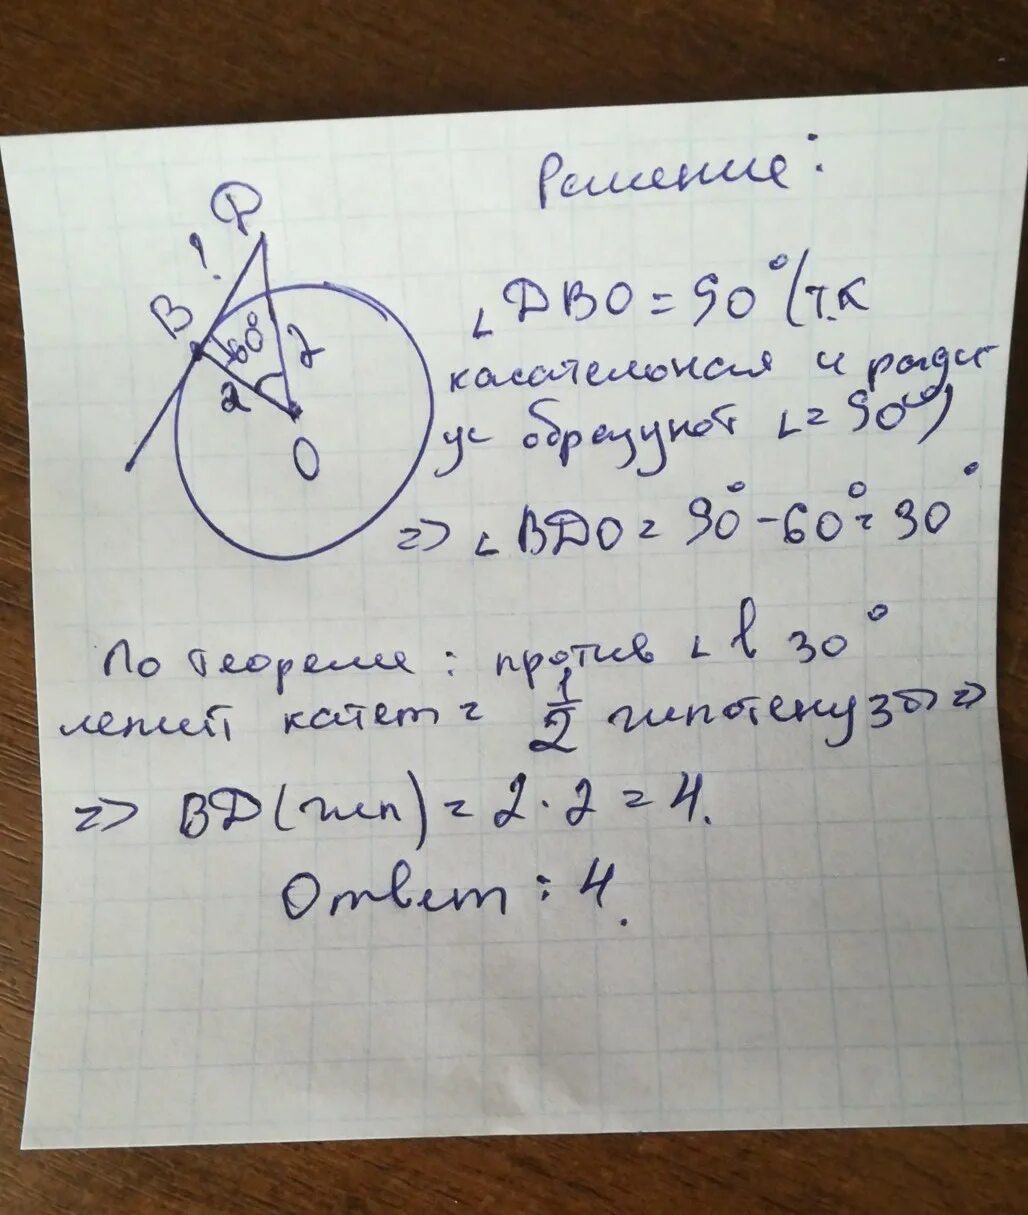 Решение:
D
!
B
60°
2
2
O
∟DBO = 90° (т.к
касательная и ради
ус образуют ∟= 90°)
=> ∟BDO = 90° - 60° = 30°
По теореме: против ∟ в 30°
лежит катет = 1/2 гипотенузы =>
=> BD (гип) = 2 · 2 = 4.
Ответ: 4.